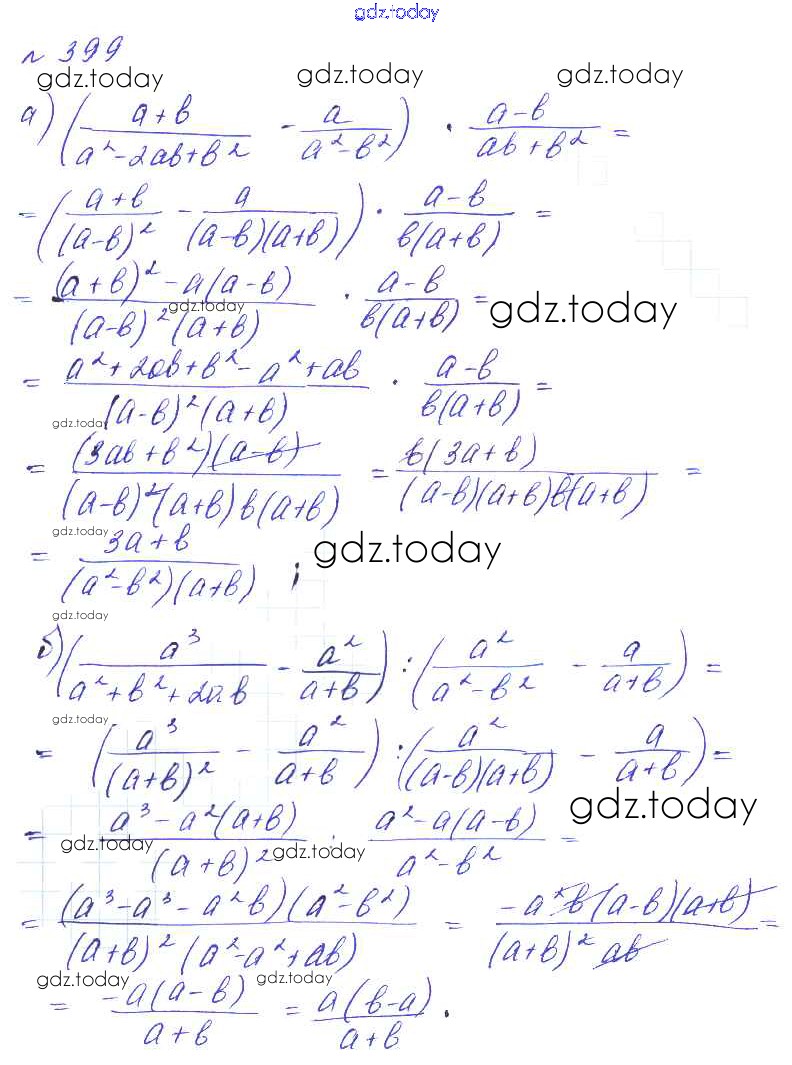 gdz.today
№ 399
gdz.today gdz.today gdz.today
а) ((a+b)/(a²-2ab+b²) - a/(a²-b²)) · (a-b)/(ab+b²) =
= ((a+b)/(a-b)² - a/((a-b)(a+b))) · (a-b)/(b(a+b)) =
= ((a+b)²-a(a-b))/((a-b)²(a+b)) · (a-b)/(b(a+b)) =
gdz.today gdz.today
= (a²+2ab+b²-a²+ab)/((a-b)²(a+b)) · (a-b)/(b(a+b)) =
gdz.today
= ((3ab+b²)(a-b))/((a-b)²(a+b)b(a+b)) = (b(3a+b))/((a-b)(a+b)b(a+b)) =
gdz.today
= (3a+b)/((a²-b²)(a+b)) ;
gdz.today
gdz.today
б) (a³/(a²+b²+2ab) - a²/(a+b)) : (a²/(a²-b²) - a/(a+b)) =
gdz.today
= (a³/(a+b)² - a²/(a+b)) : (a²/((a-b)(a+b)) - a/(a+b)) =
gdz.today
= (a³-a²(a+b))/(a+b)² : (a²-a(a-b))/(a²-b²) =
gdz.today gdz.today
= ((a³-a³-a²b)(a²-b²))/((a+b)²(a²-a²+ab)) = (-a²b(a-b)(a+b))/((a+b)²ab) =
gdz.today gdz.today
= (-a(a-b))/(a+b) = (a(b-a))/(a+b) .